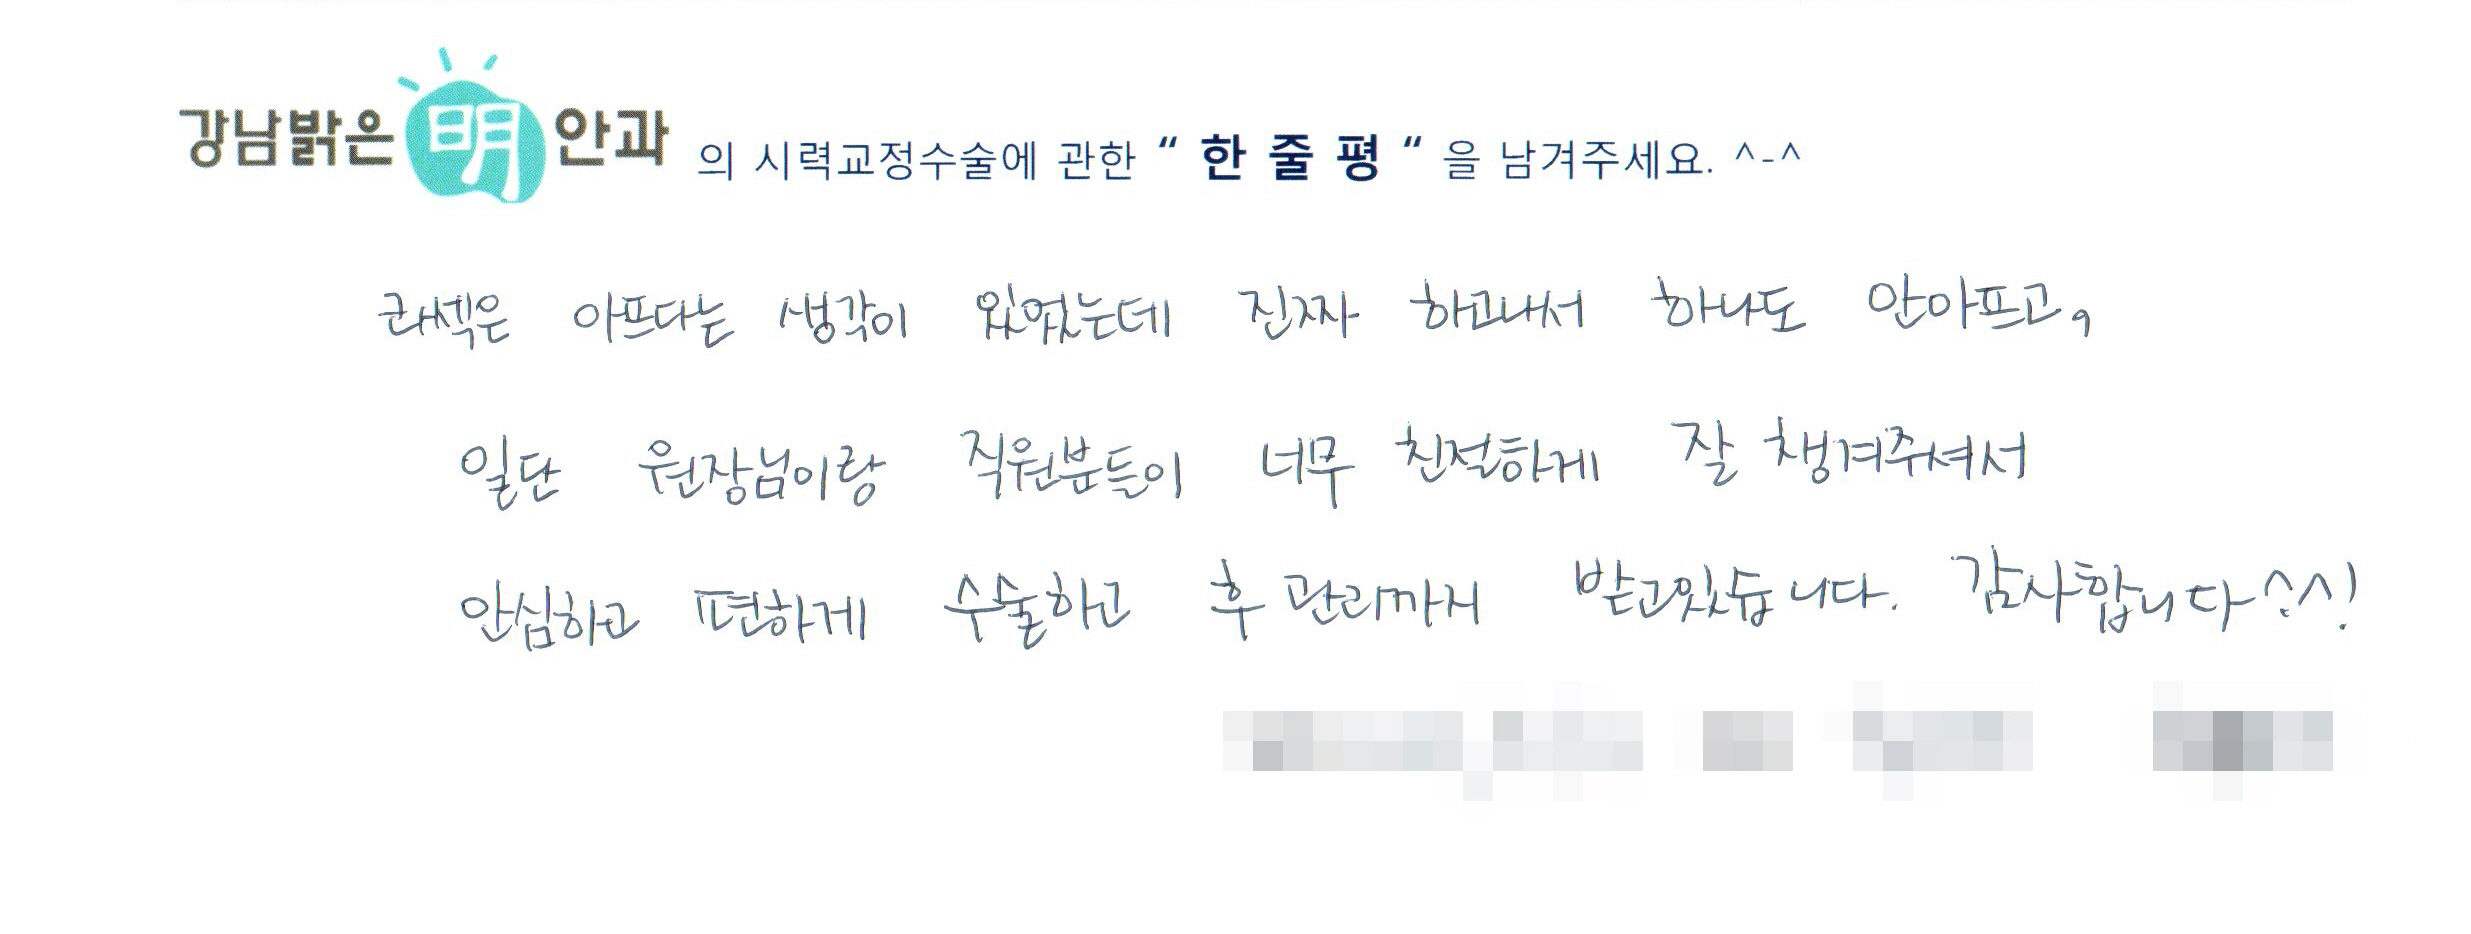 강남밝은明안과 의 시력교정수술에 관한 “ 한 줄 평 “ 을 남겨주세요. ^-^
라섹은 아프다는 생각이 있었는데 진짜 하고나서 하나도 안아프고,
일단 원장님이랑 직원분들이 너무 친절하게 잘 챙겨주셔서
안심하고 편하게 수술하고 후 관리까지 받고있습니다. 감사합니다^^!